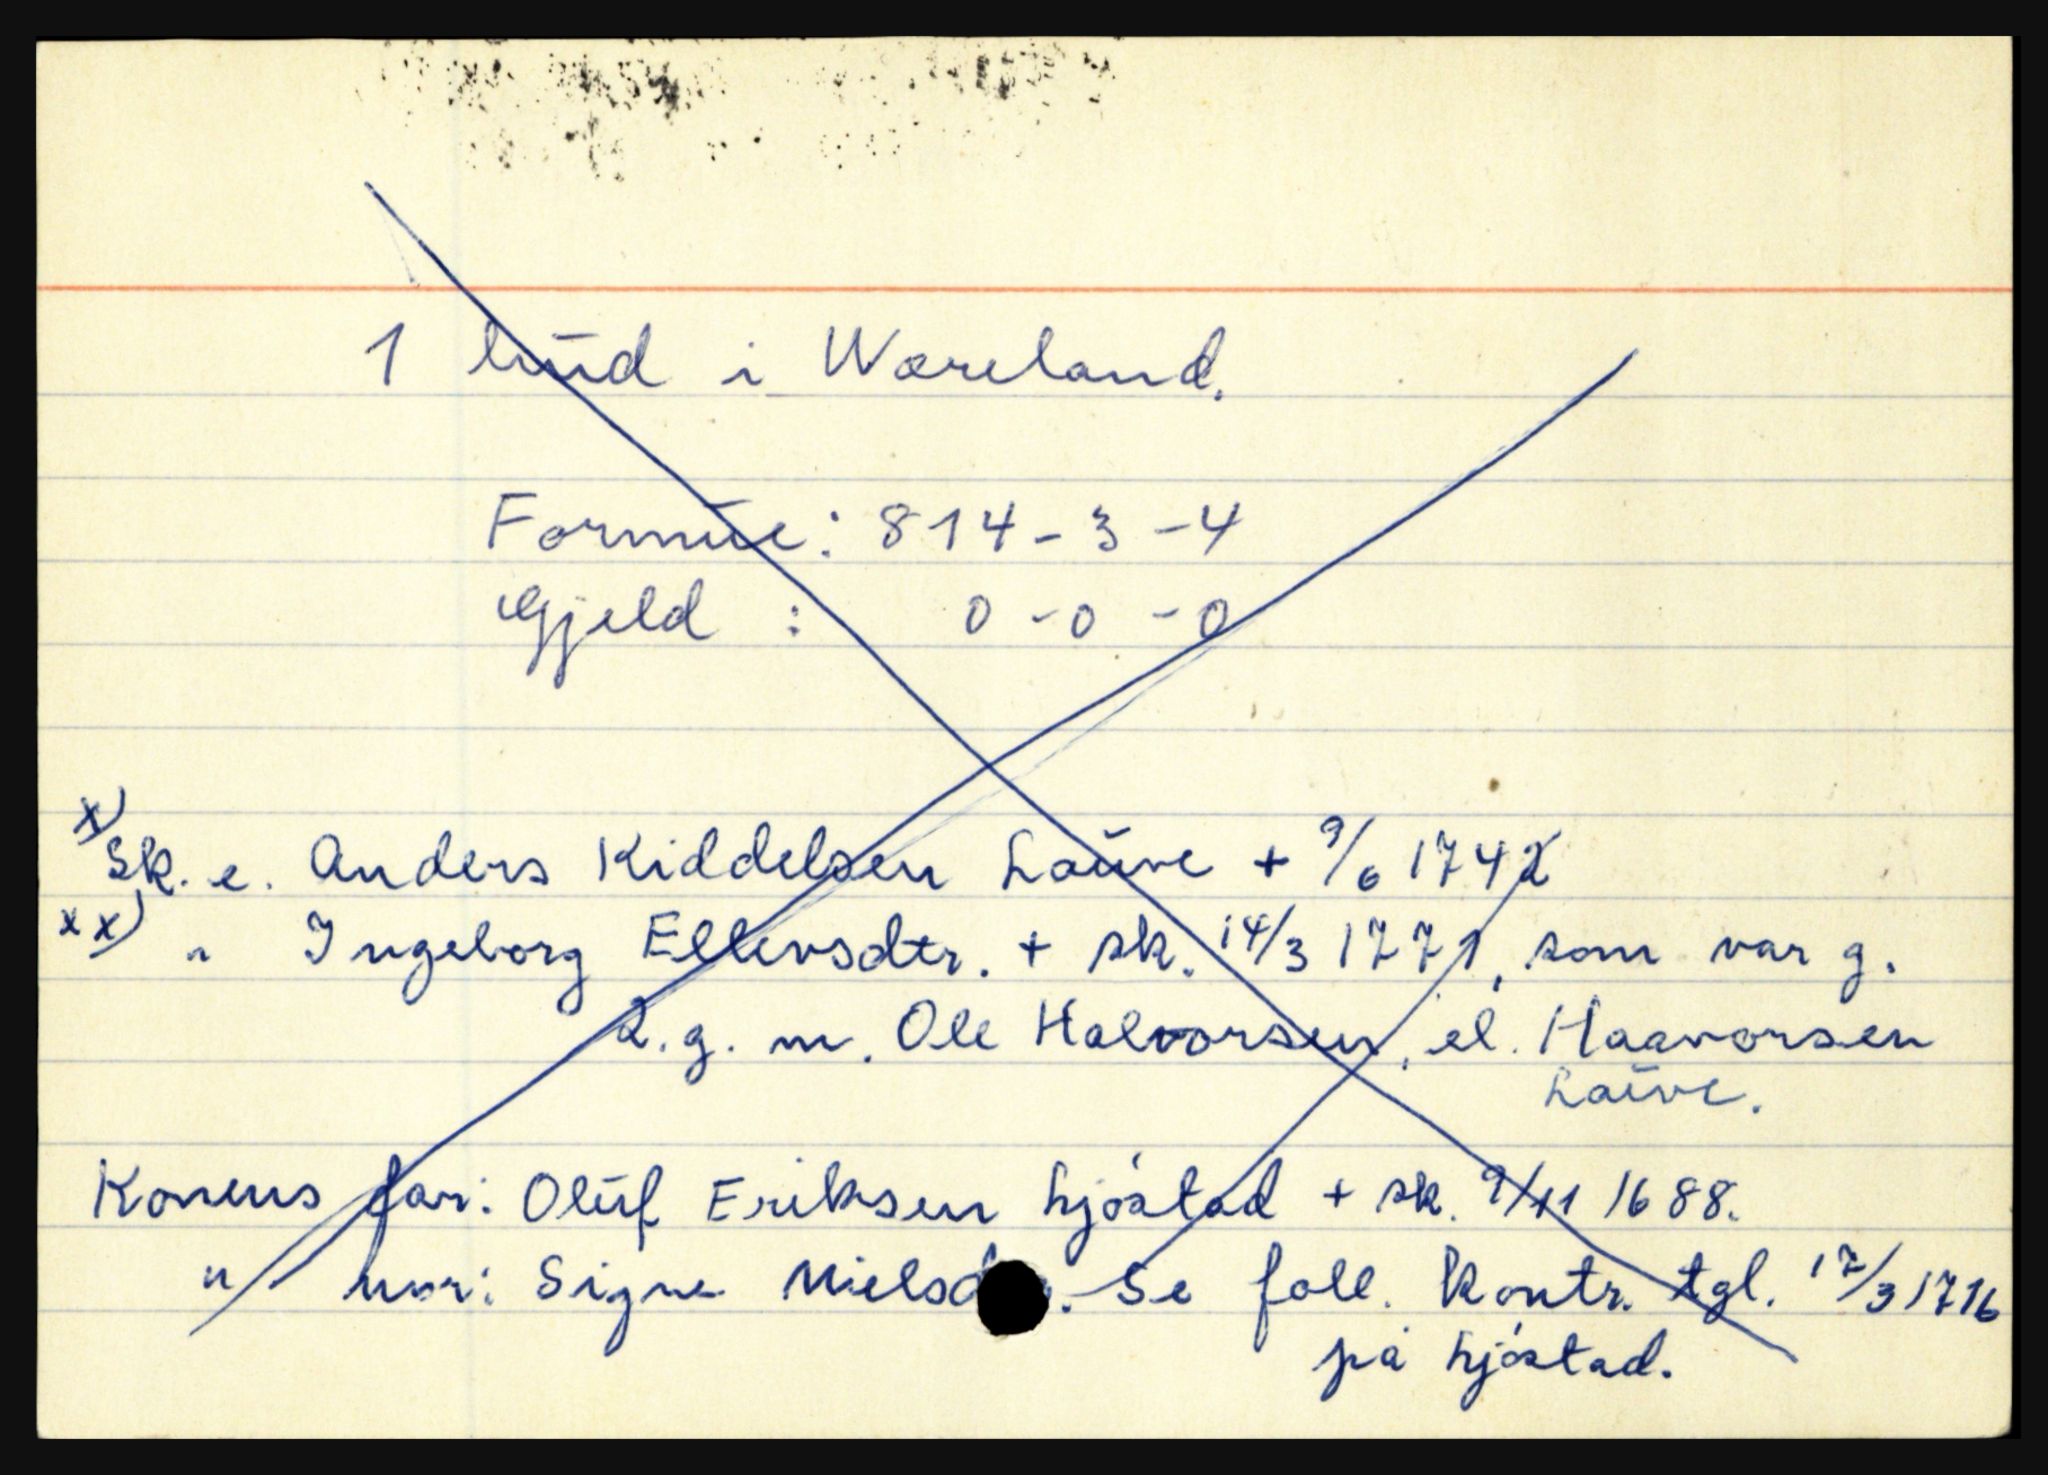 1 hud i Wæreland.
Formue: 814-3-4
Gjeld : 0-0-0
x)
Sk. e. Anders Kiddelsen Lauve + 9/6 1742
xx) " Ingeborg Ellevsdtr. + sk. 14/3 1771, som var g.
2.g. m. Ole Halvorsen, el. Haavorsen
Lauve.
Konens far: Oluf Eriksen Ljøstad + sk. 9/11 1688.
" mor: Signe Nielsd . Se foll. kontr. tgl. 17/3 1716
på Ljøstad.